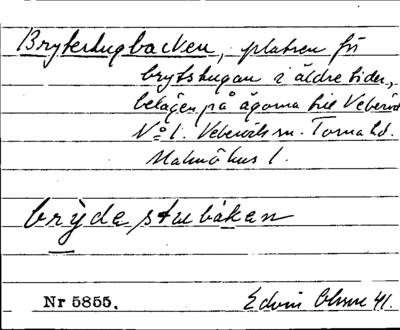 Brytestugbacken, platsen för
brytstugan i äldre tider,
belägen på ägorna till Veberöd
No 1. Veberöds sn. Torna hd.
Malmöhus l.
brỳdestubákan
Nr 5855. Edvin Ohlsson 41.